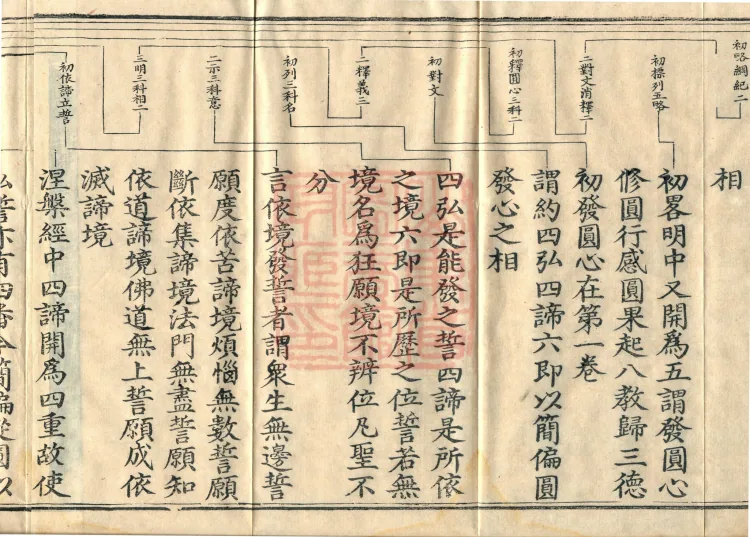 初略綱紀二
相
初標列五略
初畧明中又開爲五謂發圓心
修圓行感圓果起八教歸三德
二對文消釋二
初發圓心在第一卷
初釋圓心三科二
謂約四弘四諦六即以簡偏圓
發心之相
初對文
四弘是能發之誓四諦是所依
之境六即是所歷之位誓若無
境名爲狂願境不辨位凡聖不
分
二釋義三
初列三科名
言依境發誓者謂衆生無邊誓
願度依苦諦境煩惱無數誓願
斷依集諦境法門無盡誓願知
依道諦境佛道無上誓願成依
滅諦境
二示三科意
三明三科相二
初依諦立誓
涅槃經中四諦開爲四重故使
弘誓亦有四番今簡偏從圓以